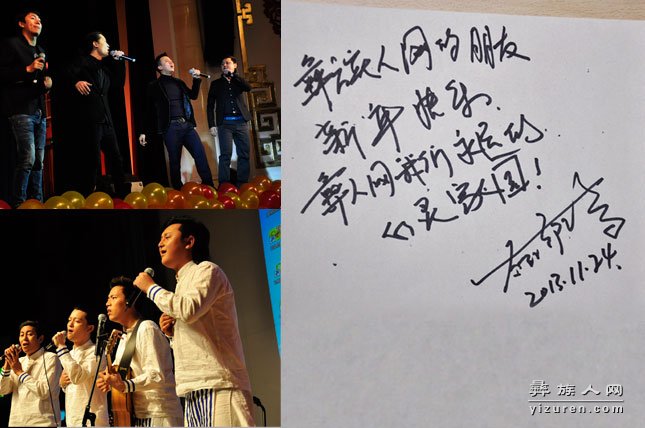 彝族人网的朋友
新年快乐.
彝人网我们永远的
心灵家园!
2013.11.24.
彝族人网
yizuren.com